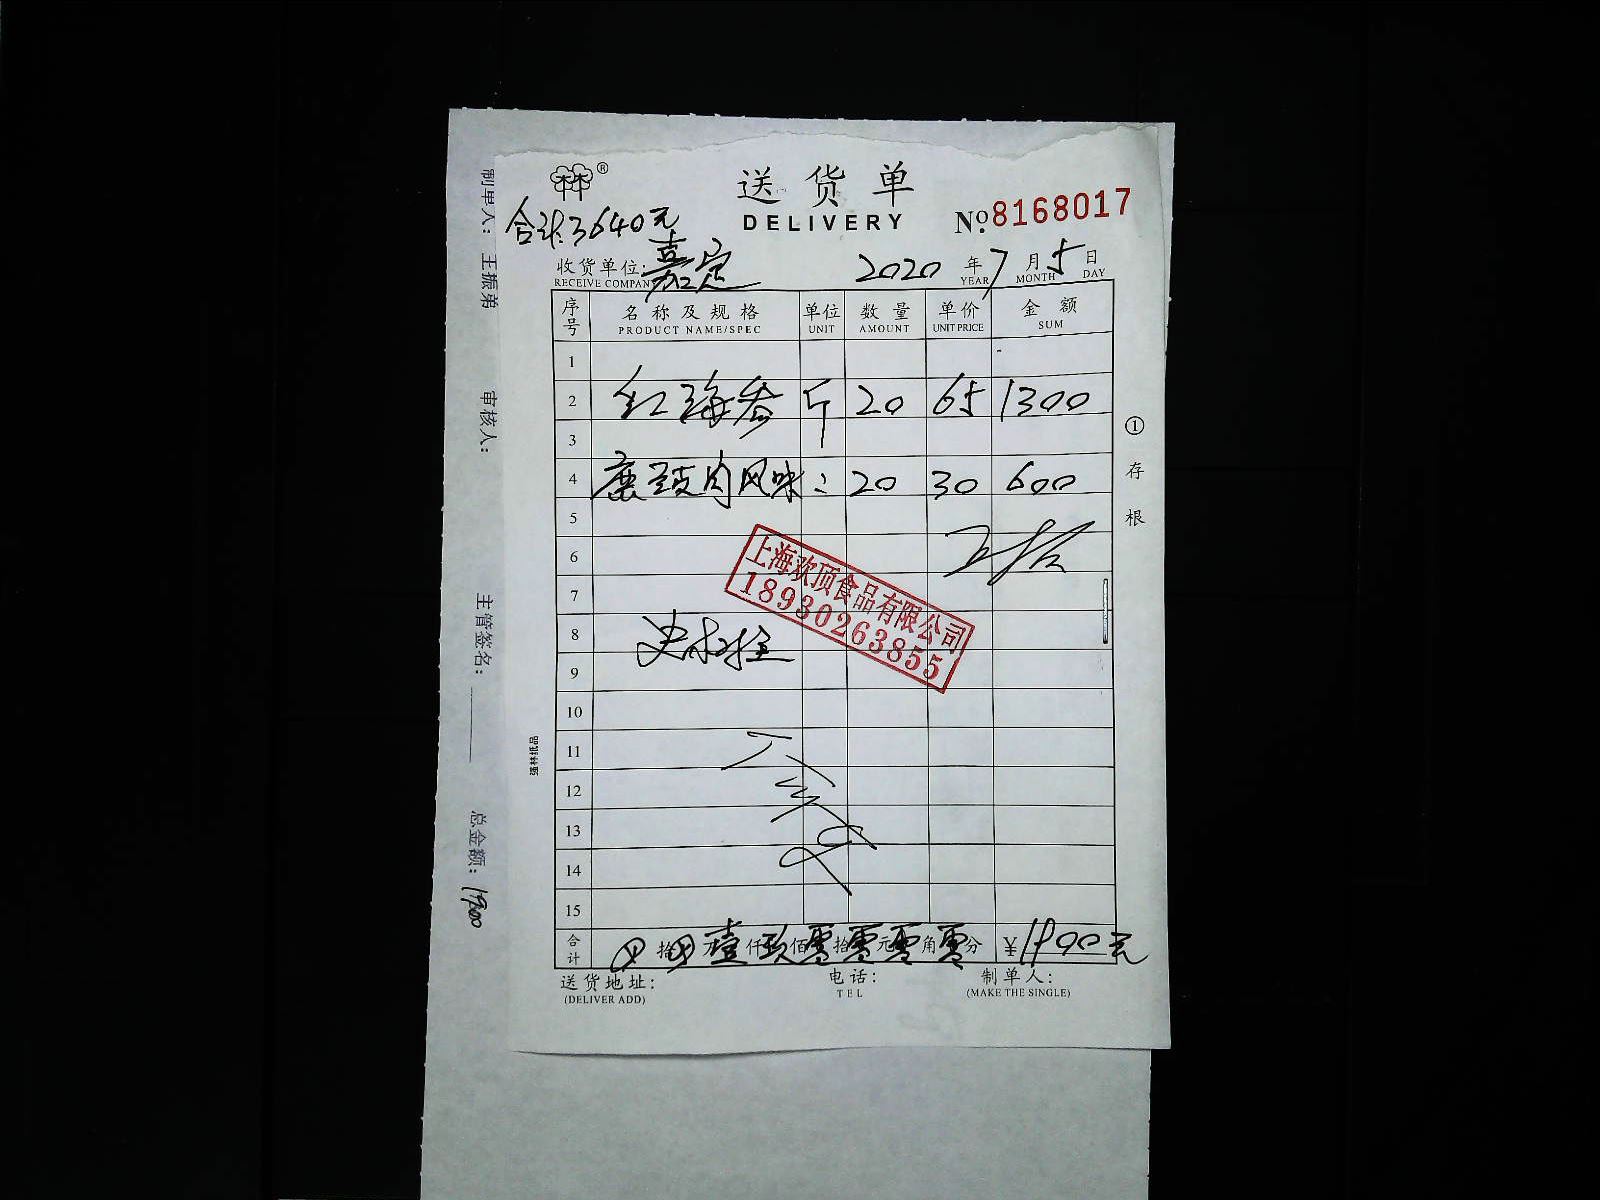 送货单
DELIVERY
№ 8168017
合计:3640元
收货单位: 嘉定
RECEIVE COMPANY
2020 年 7 月 5 日
YEAR MONTH DAY
序号 名称及规格 单位 数量 单价 金额
PRODUCT NAME/SPEC UNIT AMOUNT UNIT PRICE SUM
1
2 红海参 斤 20 65 1300
3
4 鹿豉肉风味 : 20 30 600
5
6
7
上海欢顶食品有限公司
18930263855
8
9
10
11
12
13
14
15
合计 拾 万 壹 仟 玖 佰 零 拾 零 元 零 角 零 分 ¥1900元
送货地址: 电话: 制单人:
(DELIVER ADD) TEL (MAKE THE SINGLE)
① 存根
强林纸品
制单人: 王振弟 审核人: 主管签名: 总金额: 1900